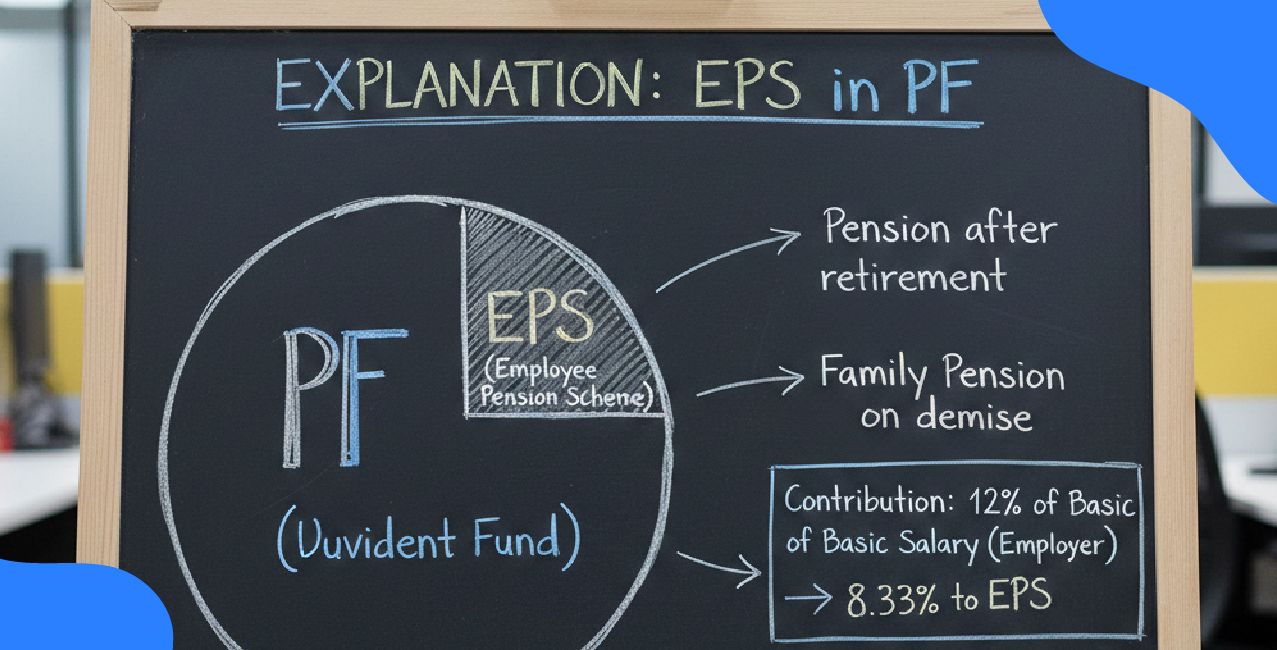 EXPLANATION: EPS in PF
PF
(Uuvident Fund)
EPS
(Employee
Pension Scheme)
Pension after
retirement
Family Pension
on demise
Contribution: 12% of Basic
of Basic Salary (Employer)
→ 8.33% to EPS